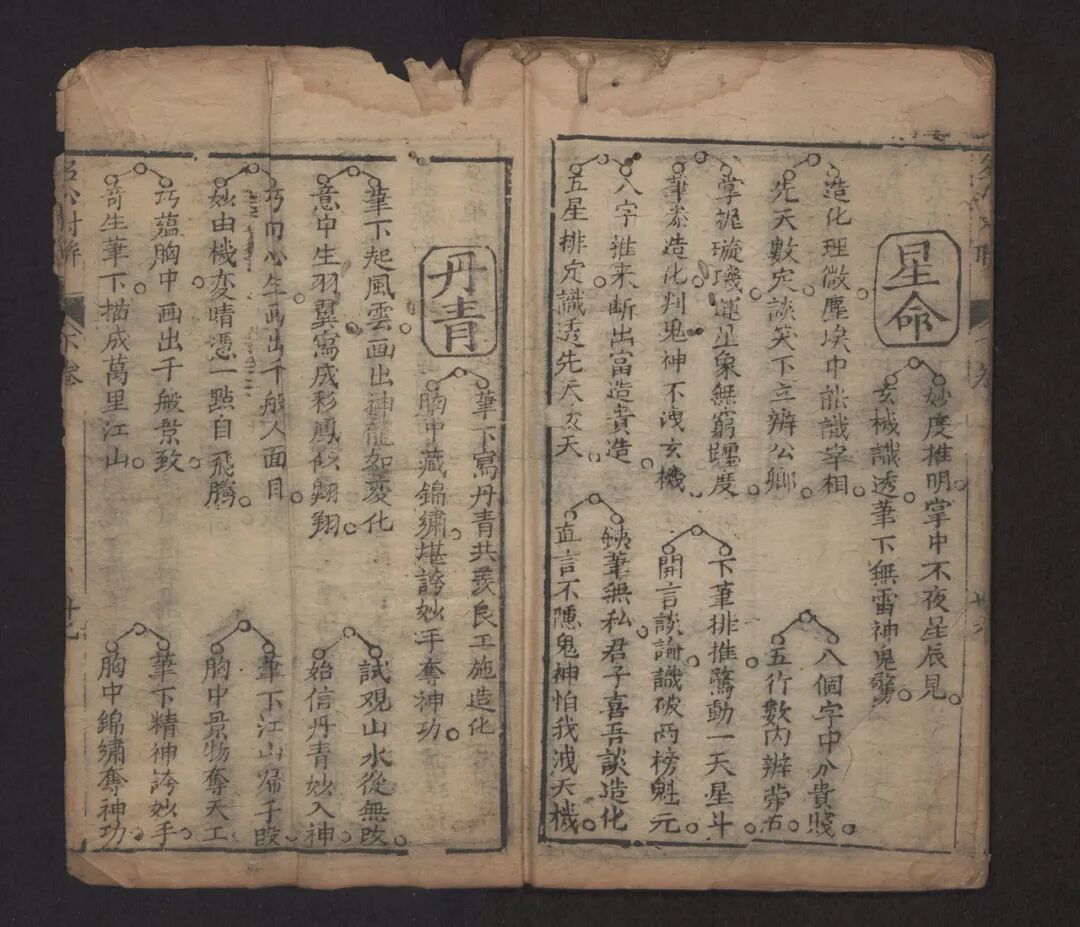 星命
妙度推明掌中不夜星辰見
玄械識透筆下無雷神鬼驚
造化理微塵埃巾能識宰相
八個字中分貴賤
先天數定談笑下立辨公卿
五行數內辨荣古
掌握璇璣運並象無窮躔度
下筆排推驚動一天星斗
筆泰造化判鬼神不洩玄機
開言談論識破兩榜魁元
八字推来断出富造貴造
鉄筆無私君子喜吾談造化
五星排定識透先天天
直言不隱鬼神怕我洩天機
丹青
筆下寫丹青共羨良工施造化
胸中藏錦繡堪誇妙手奪神功
筆下起風雲画出神龍如変化
試观山水從無改
意中生羽翼寫成彩鳳似翱翔
始信丹青妙入神
巧由心生画出千般人面目
筆下江山帰手段
妙由機変晴憑一點自飛騰
胸中景物奪天工
巧蘊胸中画出千般景致
筆下精神誇妙手
奇生筆下描成萬里江山
胸中錦繡奪神功
下卷